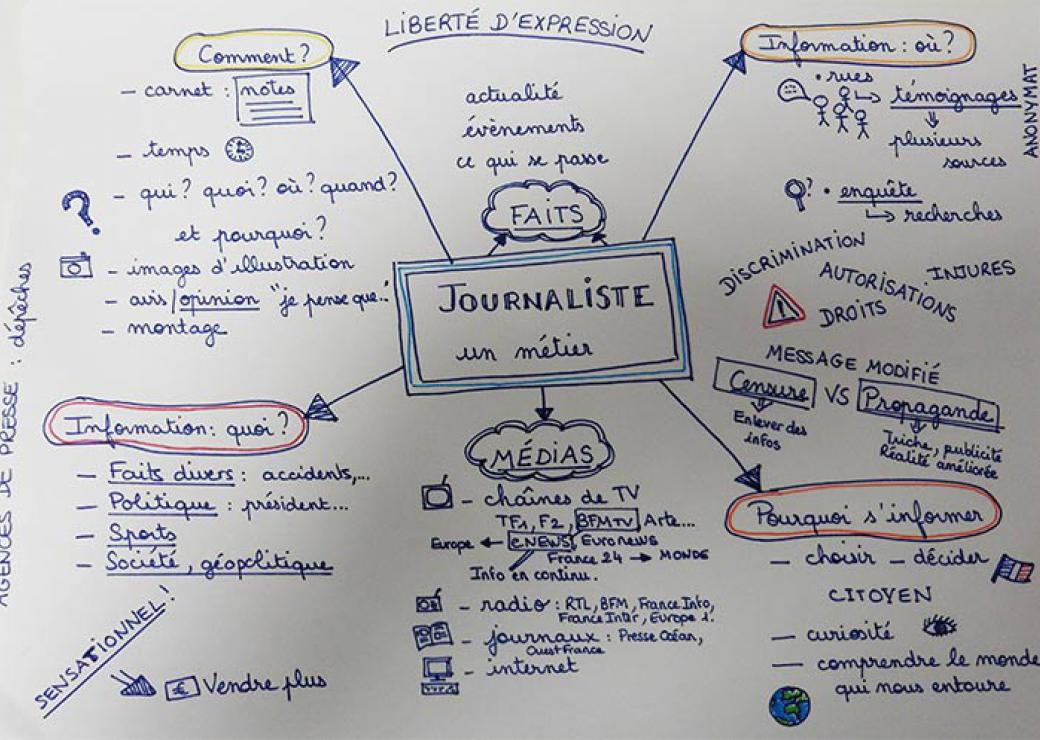 LIBERTÉ D'EXPRESSION
Comment ?
- carnet : notes
- temps
? - qui ? quoi ? où ? quand ?
et pourquoi ?
- images d'illustration
- avis/opinion "je pense que.."
- montage
actualité
évènements
ce qui se passe
FAITS
JOURNALISTE
un métier
Information : où ?
• rues
↳ témoignages
plusieurs
sources
ANONYMAT
? • enquête
↳ recherches
DISCRIMINATION
AUTORISATIONS
INJURES
! DROITS
MESSAGE MODIFIÉ
Censure VS Propagande
Enlever des
infos
Triche, publicité
Réalité améliorée
AGENCES DE PRESSE : dépêches
Information : quoi ?
- Faits divers : accidents,...
- Politique : président...
- Sports
- Société, géopolitique
SENSATIONNEL !
€ Vendre plus
MÉDIAS
- chaînes de TV
TF1, F2, BFMTV Arte...
Europe ← CNEWS, Euronews
France 24 → MONDE
Info en continu.
- radio : RTL, BFM, France Info,
France Inter, Europe 1.
- journaux : Presse Océan,
Ouest France
- internet
Pourquoi s'informer
- choisir - décider
CITOYEN
- curiosité
- comprendre le monde
qui nous entoure